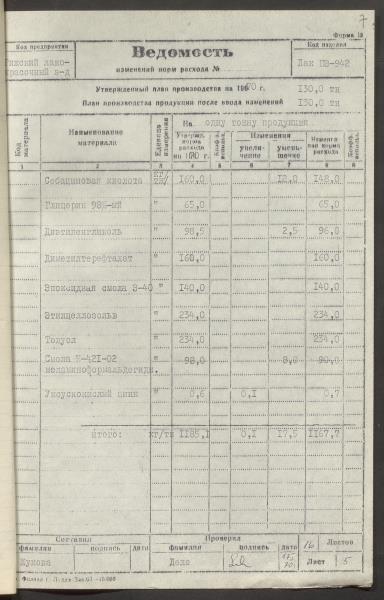 7
Форма 18
Код предприятия
Рижский лако-
красочный з-д
Ведомость
изменений норм расхода №
Код изделия
Лак ПЭ-942
Утвержденный план производства на 1970 г.
130,0 тн
План производства продукции после ввода изменений
130,0 тн
Код материала
Наименование материала
Единица измерения
На одну тонну продукции
Утвержд. норма расхода на 1970 г.
Коэфф. использ.
Изменения
увеличение
уменьшение
Измененная норма расхода
Коэфф. использ.
1 2 3 4 5 6 7 8 9
Себациновая кислота кг/тн 160,0 12,0 148,0
Глицерин 98%-ый " 65,0 65,0
Диэтиленгликоль " 98,5 2,5 96,0
Диметилтерефталат " 160,0 160,0
Эпоксидная смола Э-40 " 140,0 140,0
Этилцеллозольв " 234,0 234,0
Толуол " 234,0 234,0
Смола К-421-02 " 98,0 8,0 90,0
меламиноформальдегидн.
Уксуснокислый цинк " 0,6 0,1 0,7
итого: кг/тн 1185,1 0,1 17,5 1167,7
Составил
фамилия подпись дата
Жукова
Проверил
фамилия подпись дата
16 Листов
Лист 5